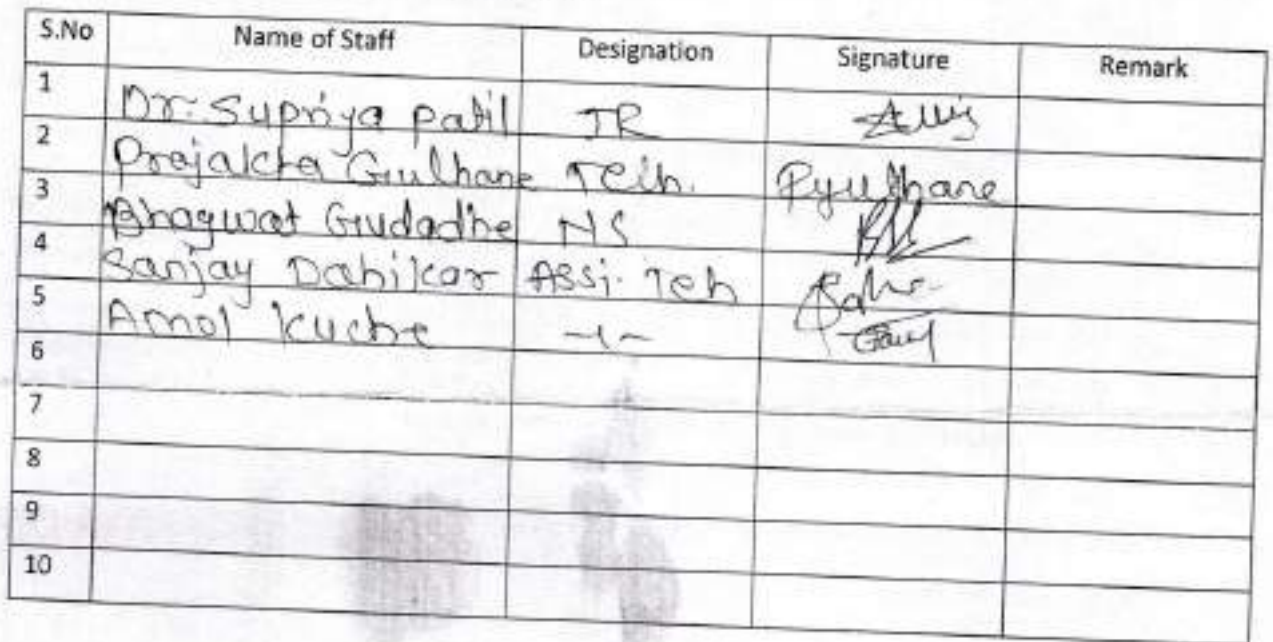 S.No Name of Staff Designation Signature Remark
1 Dr. Supriya Patil JR
2 Prajakta Gulhane Tech. Pgulhane
3 Bhagwat Gudadhe NS
4 Sanjay Dahikar Assi. Teh
5 Amol Kuche -〃-
6
7
8
9
10